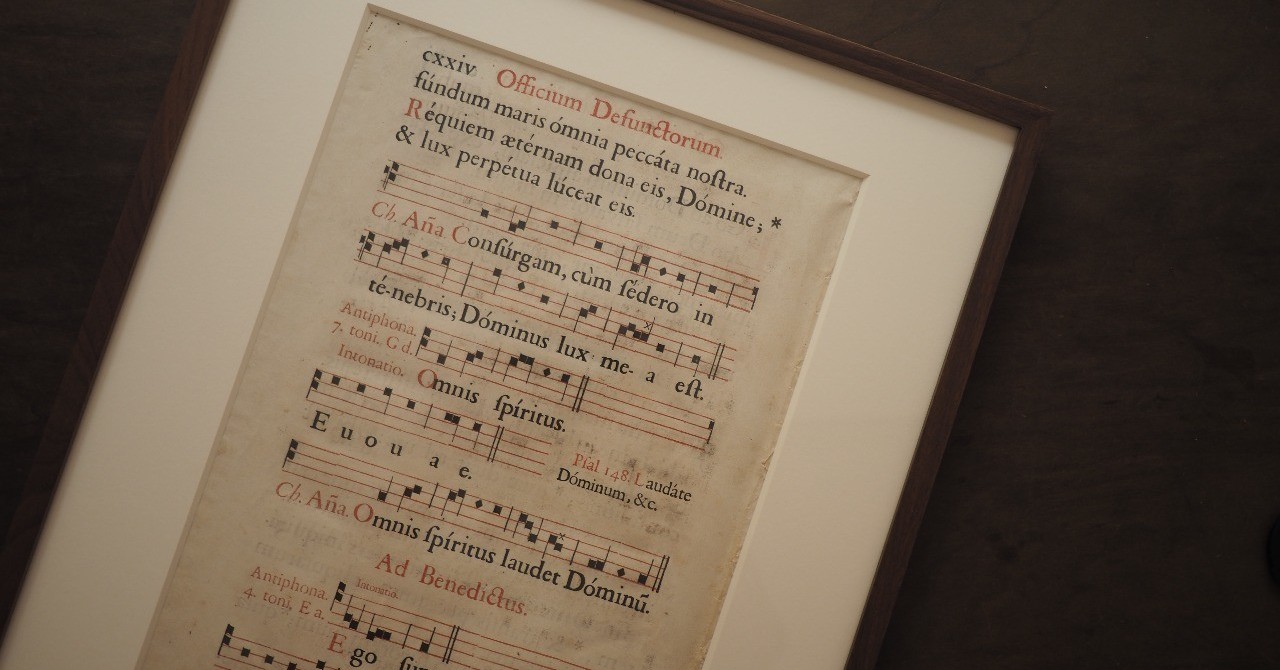 cxxiv Officium Defunctorum.
fúndum maris ómnia peccáta noſtra.
Réquiem ætérnam dona eis, Dómine; *
& lux perpétua lúceat eis.
Ch. Aña Conſúrgam, cùm ſédero in
té-nebris; Dóminus lux me- a eſt.
Antiphona.
7. toni. G d.
Intonatio. Omnis ſpíritus.
E u o u a e.
Pſal 148. Laudáte
Dóminum, &c.
Ch. Aña. Omnis ſpíritus laudet Dóminũ.
Ad Benedictus.
Antiphona. Intonatio.
4. toni. E a.
Ego ſum